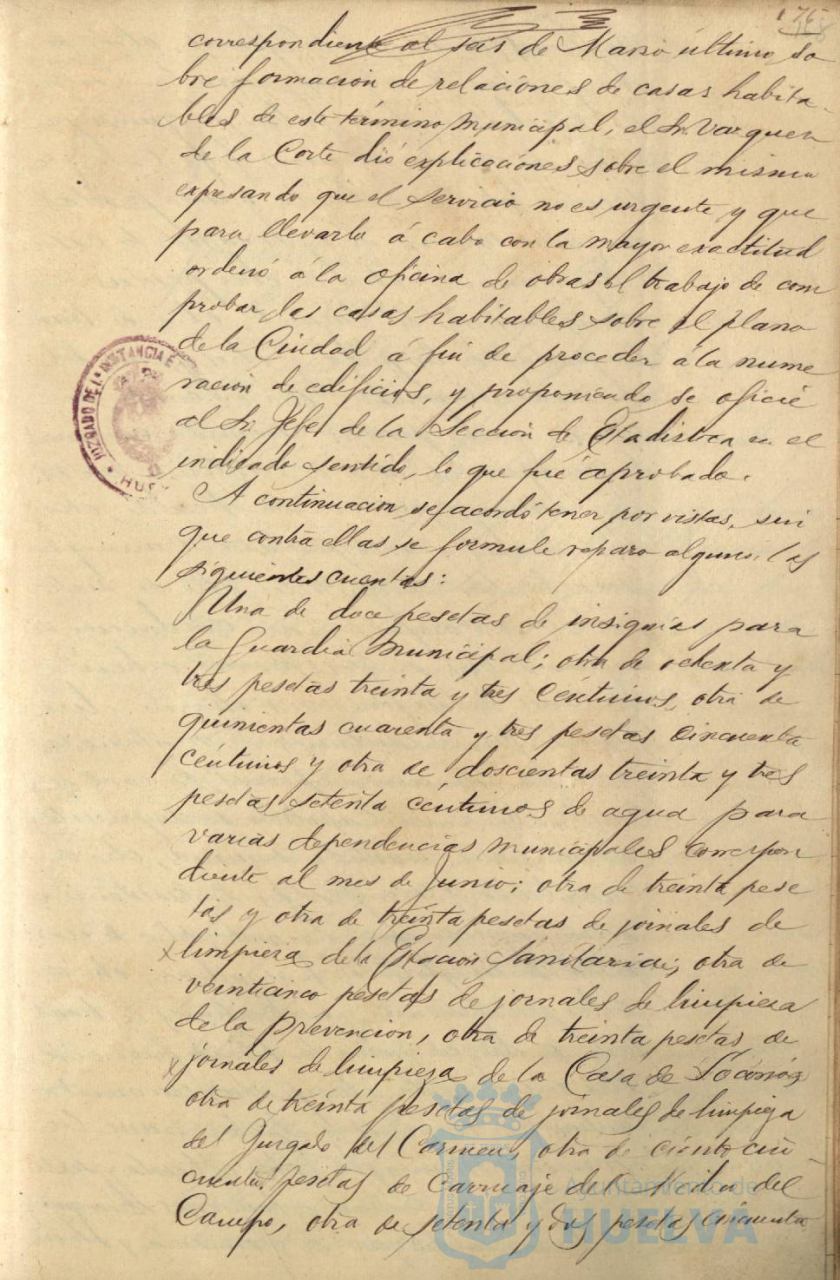 correspondiente al seis de Marzo último so
bre formacion de relaciones de casas habita
bles de este término municipal, el Sr. Vazquez
de la Corte dió explicaciones sobre el mismo
expresando que el servicio no es urgente y que
para llevarlo á cabo con la mayor exactitud
ordenó á la oficina de obras el trabajo de com
probar las casas habitables sobre el plano
de la Ciudad á fin de proceder á la nume
racion de edificios, y proponiendo se oficie
al Sr. Jefe de la Seccion de Estadistica en el
indicado sentido, lo que fué aprobado.
A continuacion se acordó tener por vistas, sin
que contra ellas se formule reparo alguno, las
siguientes cuentas:
Una de doce pesetas de insignias para
la Guardia Municipal; otra de ochenta y
tres pesetas treinta y tres céntimos, otra de
quinientas cuarenta y tres pesetas cincuenta
céntimos y otra de doscientas treinta y tres
pesetas setenta céntimos de agua para
varias dependencias municipales correspon
diente al mes de Junio; otra de treinta pese
tas y otra de treinta pesetas de jornales de
limpieza de la Estacion Sanitaria; otra de
veinticinco pesetas de jornales de limpieza
de la prevencion, otra de treinta pesetas de
jornales de limpieza de la Casa de Socorro,
otra de treinta pesetas de jornales de limpieza
del Juzgado del Carmen, otra de ciento cin
cuenta pesetas de carruaje de la del
Campo, otra de setenta y dos pesetas cincuenta
JUZGADO DE 1ª INSTANCIA E
Ayuntamiento de
HUELVA